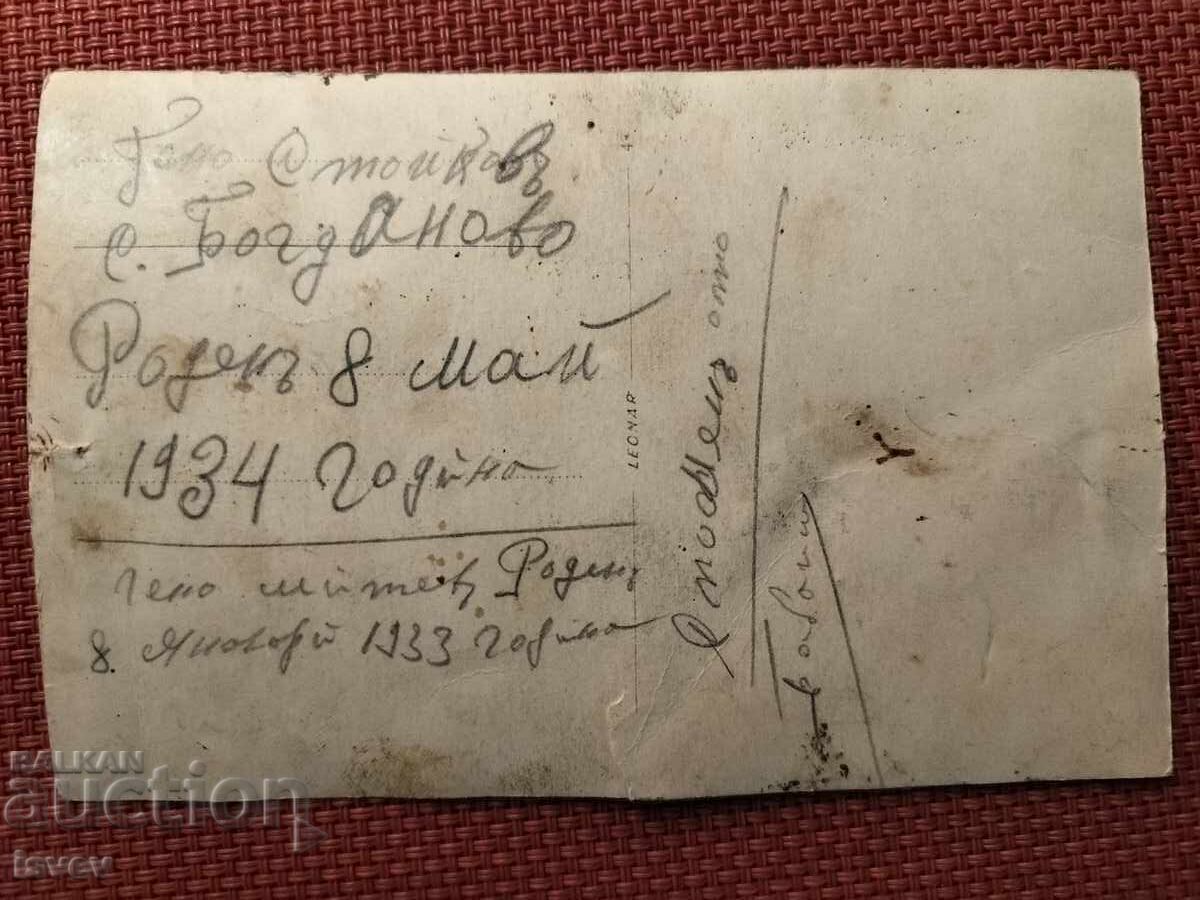 Гено Стойковъ
с. Богданово
Роденъ 8 май
1934 година
гено митевъ Роденъ
8. Януарй 1933 година
LEONAR
BALKAN
auction
isvev